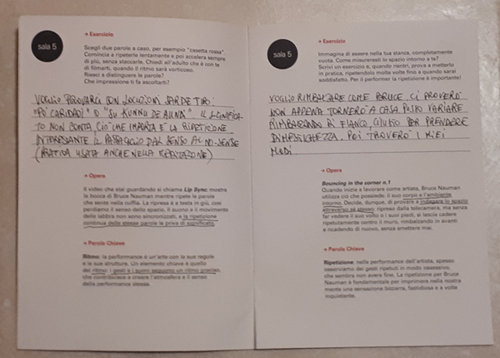 sala 5
+ Esercizio
Scegli due parole a caso, per esempio "casetta rossa".
Comincia a ripeterle lentamente e poi accelera sempre
di più, senza staccarle. Chiedi all'adulto che è con te
di filmarti, quando il ritmo sarà vorticoso.
Riesci a distinguere le parole?
Che impressione ti fa ascoltarti?
VOGLIO PROVARCI CON LOCUZIONI SARDE TIPO:
"PO CARIDADI" O "SU KUNNU DE
IL SIGNIFICA-
TO NON CONTA, CIO' CHE IMPORTA E' LA RIPETIZIONE.
INTERESSANTE IL PASSAGGIO DAL SENSO AL NO-SENSE
(PRATICA USATA ANCHE NELLA
+ Opera
Il video che stai guardando si chiama Lip Sync: mostra
la bocca di Bruce Nauman mentre ripete le parole
che sente nella cuffia. La ripresa è a testa in giù, così
perdiamo il senso dello spazio. Il suono e il movimento
delle labbra non sono sincronizzati, e la ripetizione
continua delle stesse parole le priva di significato.
+ Parole Chiave
Ritmo: la performance è un'arte con le sue regole
e la sua struttura. Un elemento chiave è quello
del ritmo: i gesti e i suoni seguono un ritmo preciso,
che contribuisce a creare l'atmosfera e il senso
della performance stessa.
sala 5
+ Esercizio
Immagina di essere nella tua stanza, completamente
vuota. Come misureresti lo spazio intorno a te?
Scrivi un esercizio e, quando rientri, prova a metterlo
in pratica, ripetendolo molte volte fino a quando sarai
soddisfatto. Per il performer la ripetizione è importante!
VOGLIO RIMBALZARE COME BRUCE. CI PROVERO'
NON APPENA TORNERO' A CASA. POSSO VARIARE
RIMBALZANDO DI FIANCO, GIUSTO PER PRENDERE
DIMESTICHEZZA. POI TROVERO' I MIEI
MODI
+ Opera
Bouncing in the corner n.1
Quando inizia a lavorare come artista, Bruce Nauman
utilizza ciò che possiede: il suo corpo e l'ambiente
intorno. Decide, dunque, di provare a indagare lo spazio
attraverso se stesso: ripreso dalla telecamera, ma senza
far vedere il suo volto e i suoi piedi, si lascia cadere
ripetutamente contro il muro, rimbalzando in avanti
e ricadendo di nuovo, senza smettere mai.
+ Parole Chiave
Ripetizione: nelle performance dell'artista, spesso
osserviamo dei gesti ripetuti in modo ossessivo,
che sembra non avere fine. La ripetizione per Bruce
Nauman è fondamentale per imprimere nella nostra
mente una sensazione bizzarra, fastidiosa e a volte
inquietante.